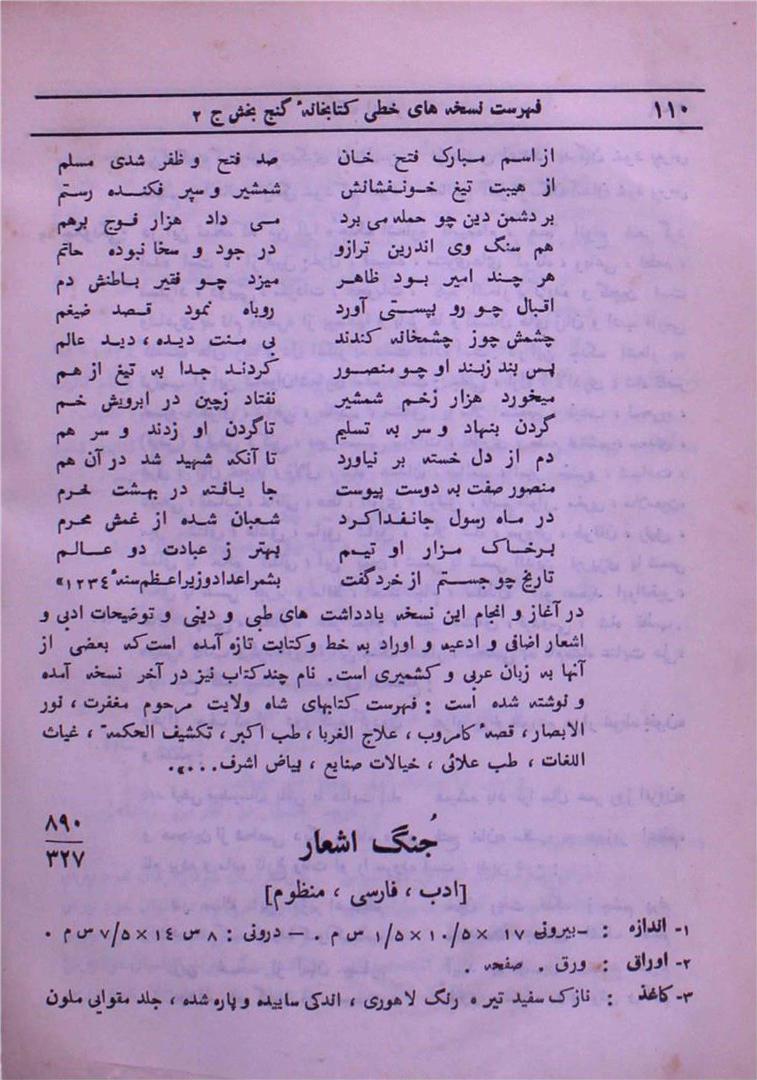 ۱۱۰ فهرست نسخه های خطی کتابخانهٔ گنج بخش ج ۲
از اسم مبارک فتح خان صد فتح و ظفر شدی مسلم
از هیبت تیغ خونفشانش شمشیر و سپر فکنده رستم
بر دشمن دین چو حمله می برد می داد هزار فوج برهم
هم سنگ وی اندرین ترازو در جود و سخا نبوده حاتم
هر چند امیر بود ظاهر میزد چو فقیر باطنش دم
اقبال چو رو پیسی آورد روباه نمود قصد ضیغم
چشمش چوز چشمخانه کندند بی منت دیده، دید عالم
پس بند زبند او چو منصور کردند جدا به تیغ از هم
میخورد هزار زخم شمشیر نفتاد زچین در ابرویش خم
گردن بنهاد و سر به تسلیم تاگردن او زدند و سر هم
دم از دل خسته بر نیاورد تا آنکه شهید شد در آن هم
منصور صفت به دوست پیوست جا یافته در بهشت خرم
در ماه رسول جانفداکرد شعبان شده از غمش محرم
برخاک مزار او تیمم بهتر ز عبادت دو عالم
تاریخ چو جستم از خردگفت بشمر اعداد وزیر اعظم سنه ۱۲۳۴»
در آغاز و انجام این نسخه یادداشت های طبی و دینی و توضیحات ادبی و
اشعار اضافی و ادعیه و اوراد به خط وکتابت تازه آمده است که بعضی از
آنها به زبان عربی و کشمیری است. نام چندکتاب نیز در آخر نسخه آمده
و نوشته شده است : فهرست کتابهای شاه ولایت مرحوم مغفرت، نور
الابصار، قصه کامروب، علاج الغربا، طب اکبر، تکشیف الحکمة، غیاث
اللغات، طب علائی، خیالات صنایع، بیاض اشرف...».
جُنگ اشعار ۸۹۰
۳۲۷
[ادب، فارسی، منظوم]
۱- اندازه : -بیرونی ۱۷ × ۱۰/۵ × ۱/۵ س م . - درونی : ۸ س ۱۴ × ۷/۵ س م .
۲- اوراق : ورق . صفحه .
۳- کاغذ : نازک سفید تیره رنگ لاهوری، اندکی ساییده و پاره شده، جلد مقوایی ملون